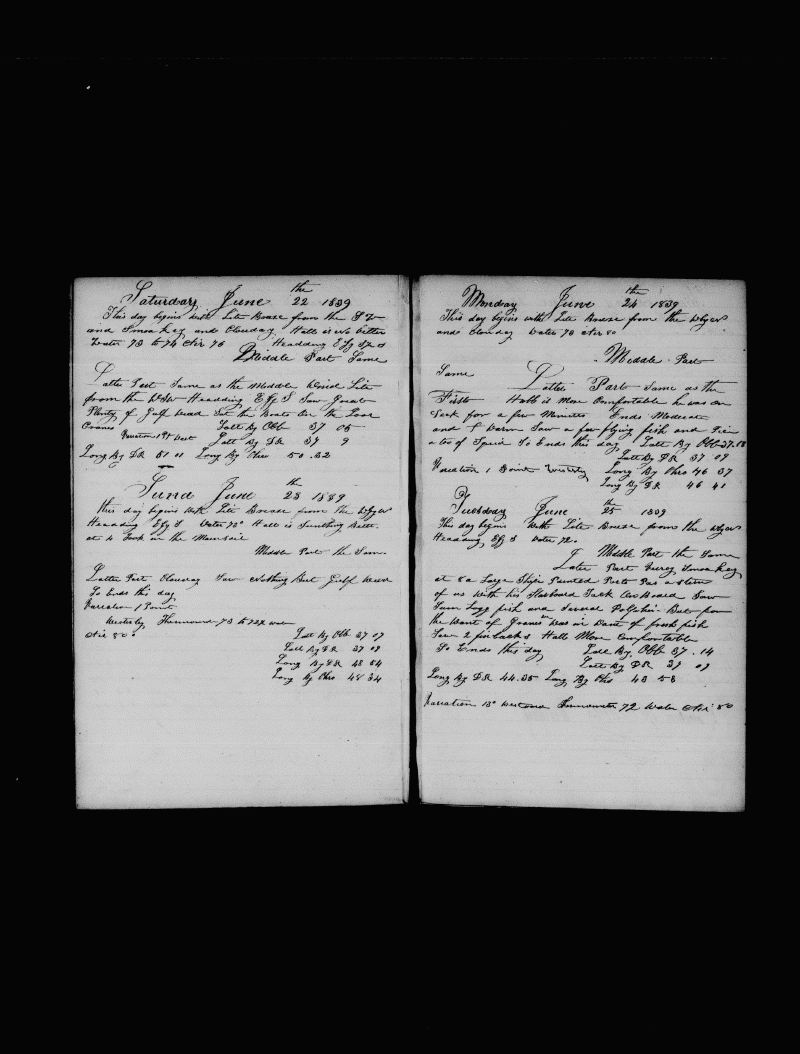 Saturday June 22th 1839
This day begins with Lite Breese from the
and Smoakey and Clouday Hall is No better
Water 73 to 74 Air 76 Headding E by
Middle Part Same
Latter Part Same as the Middle Wind Lite
from the Headding E by S Saw Great
Plenty of Gulf weed Set the Boats On the
Cranes Latt By Obb 37 05
Variation 1 Pt West Latt By DR 37 9
Long By DR 51 11 Long By Chro 50.32
Sund June 23th 1839
this day begins with Lite Breese from the WbyS
Headding EbyS Water 75° Hall is Sumthing Better
at 4 Took in the Mainsail
Middle Part the Same
Latter Part Clouday Saw Nothing But Gulf Weed
So Ends this day
Variation 1 Point
Westerly 73 to 72½ water
Air 80° Latt By Obb 37 07
Latt By DR 37 09
Long By DR 48 54
Long By Chro 48 34
Monday June 24th 1839
This day begins with Lite Breese from the WbyS
and Clouday Water 73 Air 80
Middle Part
Same Latter Part Same as the
First Hall is More Comfortable he was on
Deck for a few Minutes Ends Moderate
and Warm Saw a few flying fish and
So Ends this day Latt By Obb 37.18
Latt By DR 37 09
Variation 1 Point Westerly Long By Chro 46 37
Long By DR 46 41
Tuesday June 25th 1839
This day begins With Lite Breese from the WbyS
Headding EbyS Water 72°
Middle Part the Same
Later Part Smoakey
at 8 a Large Ship Painted Ports Pas a Stern
of us With his Starboard Tack On Board Saw
Sum fish and Several Dolphin But from
the Want of Grains was in Want of fresh fish
Saw 2 finbacks Hall More Comfortable
So Ends this day Latt By Obb 37.14
Latt By DR 37 09
Long By DR 44.35 Long By Chro 43 53
Variation 13° West 72 Water Air 80